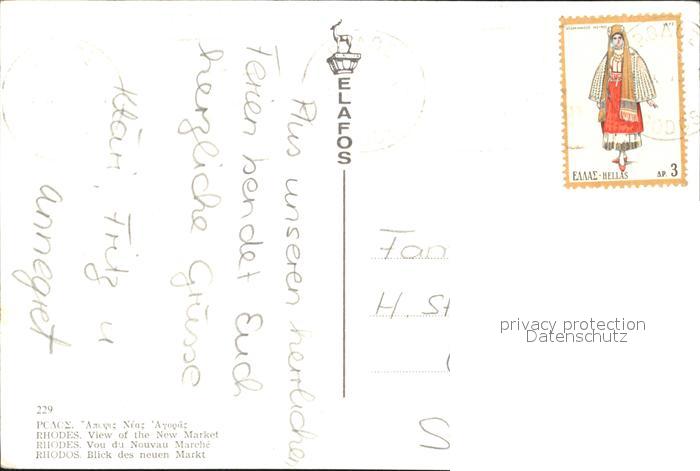 Aus unseren herrlichen
Ferien sendet Euch
herzliche Grüsse
Klári, Fritz u
Annegret
ELAFOS
ΕΛΛΑΣ-HELLAS ΔΡ. 3
Fam
H. St
privacy protection
Datenschutz
229
ΡΟΔΟΣ. Ἄποψις Νέας Ἀγορᾶς
RHODES. View of the New Market
RHODES. Vou du Nouvau Marché
RHODOS. Blick des neuen Markt